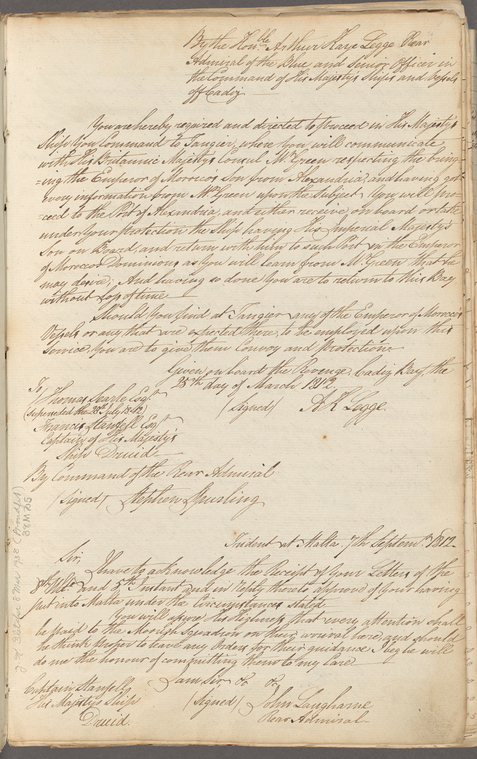 By the Honble. Arthur Kaye Legge Rear
Admiral of the Blue, and Senior Officer in
the Command of His Majesty's Ships and Vessels
off Cadiz
You are hereby required and directed to proceed in His Majesty's
Ship You Command to Tangier, where You will communicate
with His Britannic Majesty's Consul Mr Green respecting the bring-
-ing the Emperor of Morocco's Son from Alexandria, and having got
every information from Mr Green upon the Subject You will pro-
-ceed to the Port of Alexandria, and either receive on board or take
under Your protection the Ship having His Imperial Majesty's
Son on Board, and return with him to such Port in the Emperor
of Morocco's Dominions as You will learn from Mr Green that he
may desire, And having so done You are to return to this Bay
without loss of time
Should You find at Tangier any of the Emperor of Morocco's
Vessels or any that are expected there, to be employed upon this
Service, You are to give them Convoy and Protection
Given on board the Revenge, Cadiz Bay, the
28th. day of March 1812.
To
Thomas Searle Esqr (Signed) A K Legge
(Superseded the 28th July 1812)
Francis Stanfell Esqr
Captains of His Majesty's
Ship Druid
By Command of the Rear Admiral
(Signed) Stephen
Trident at Malta 7th Septemr. 1812
Sir,
I have to acknowledge the Receipt of Your Letters of the
Ulto. and 5th Instant, and in reply thereto approve of Your having
put into Malta under the Circumstances stated
You will assure His Highness that every attention shall
be paid to the Moorish Squadron on their arrival here, and should
he think proper to leave any Orders for their guidance I only will
do me the honour of committing them to my Care
I am Sir &c &c
Captain Stanfell (Signed) John Laugharne
His Majesty's Ship Rear Admiral
Druid